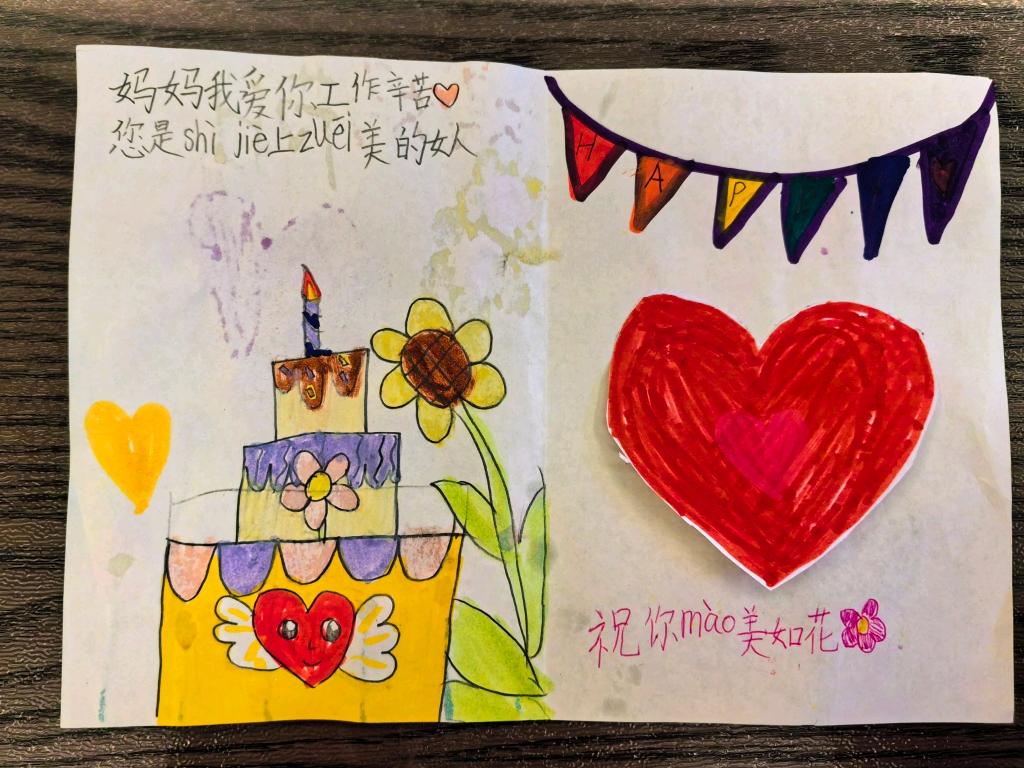 妈妈我爱你工作辛苦
您是shì jiè上zuēi美的女人
H A P
祝你mào美如花